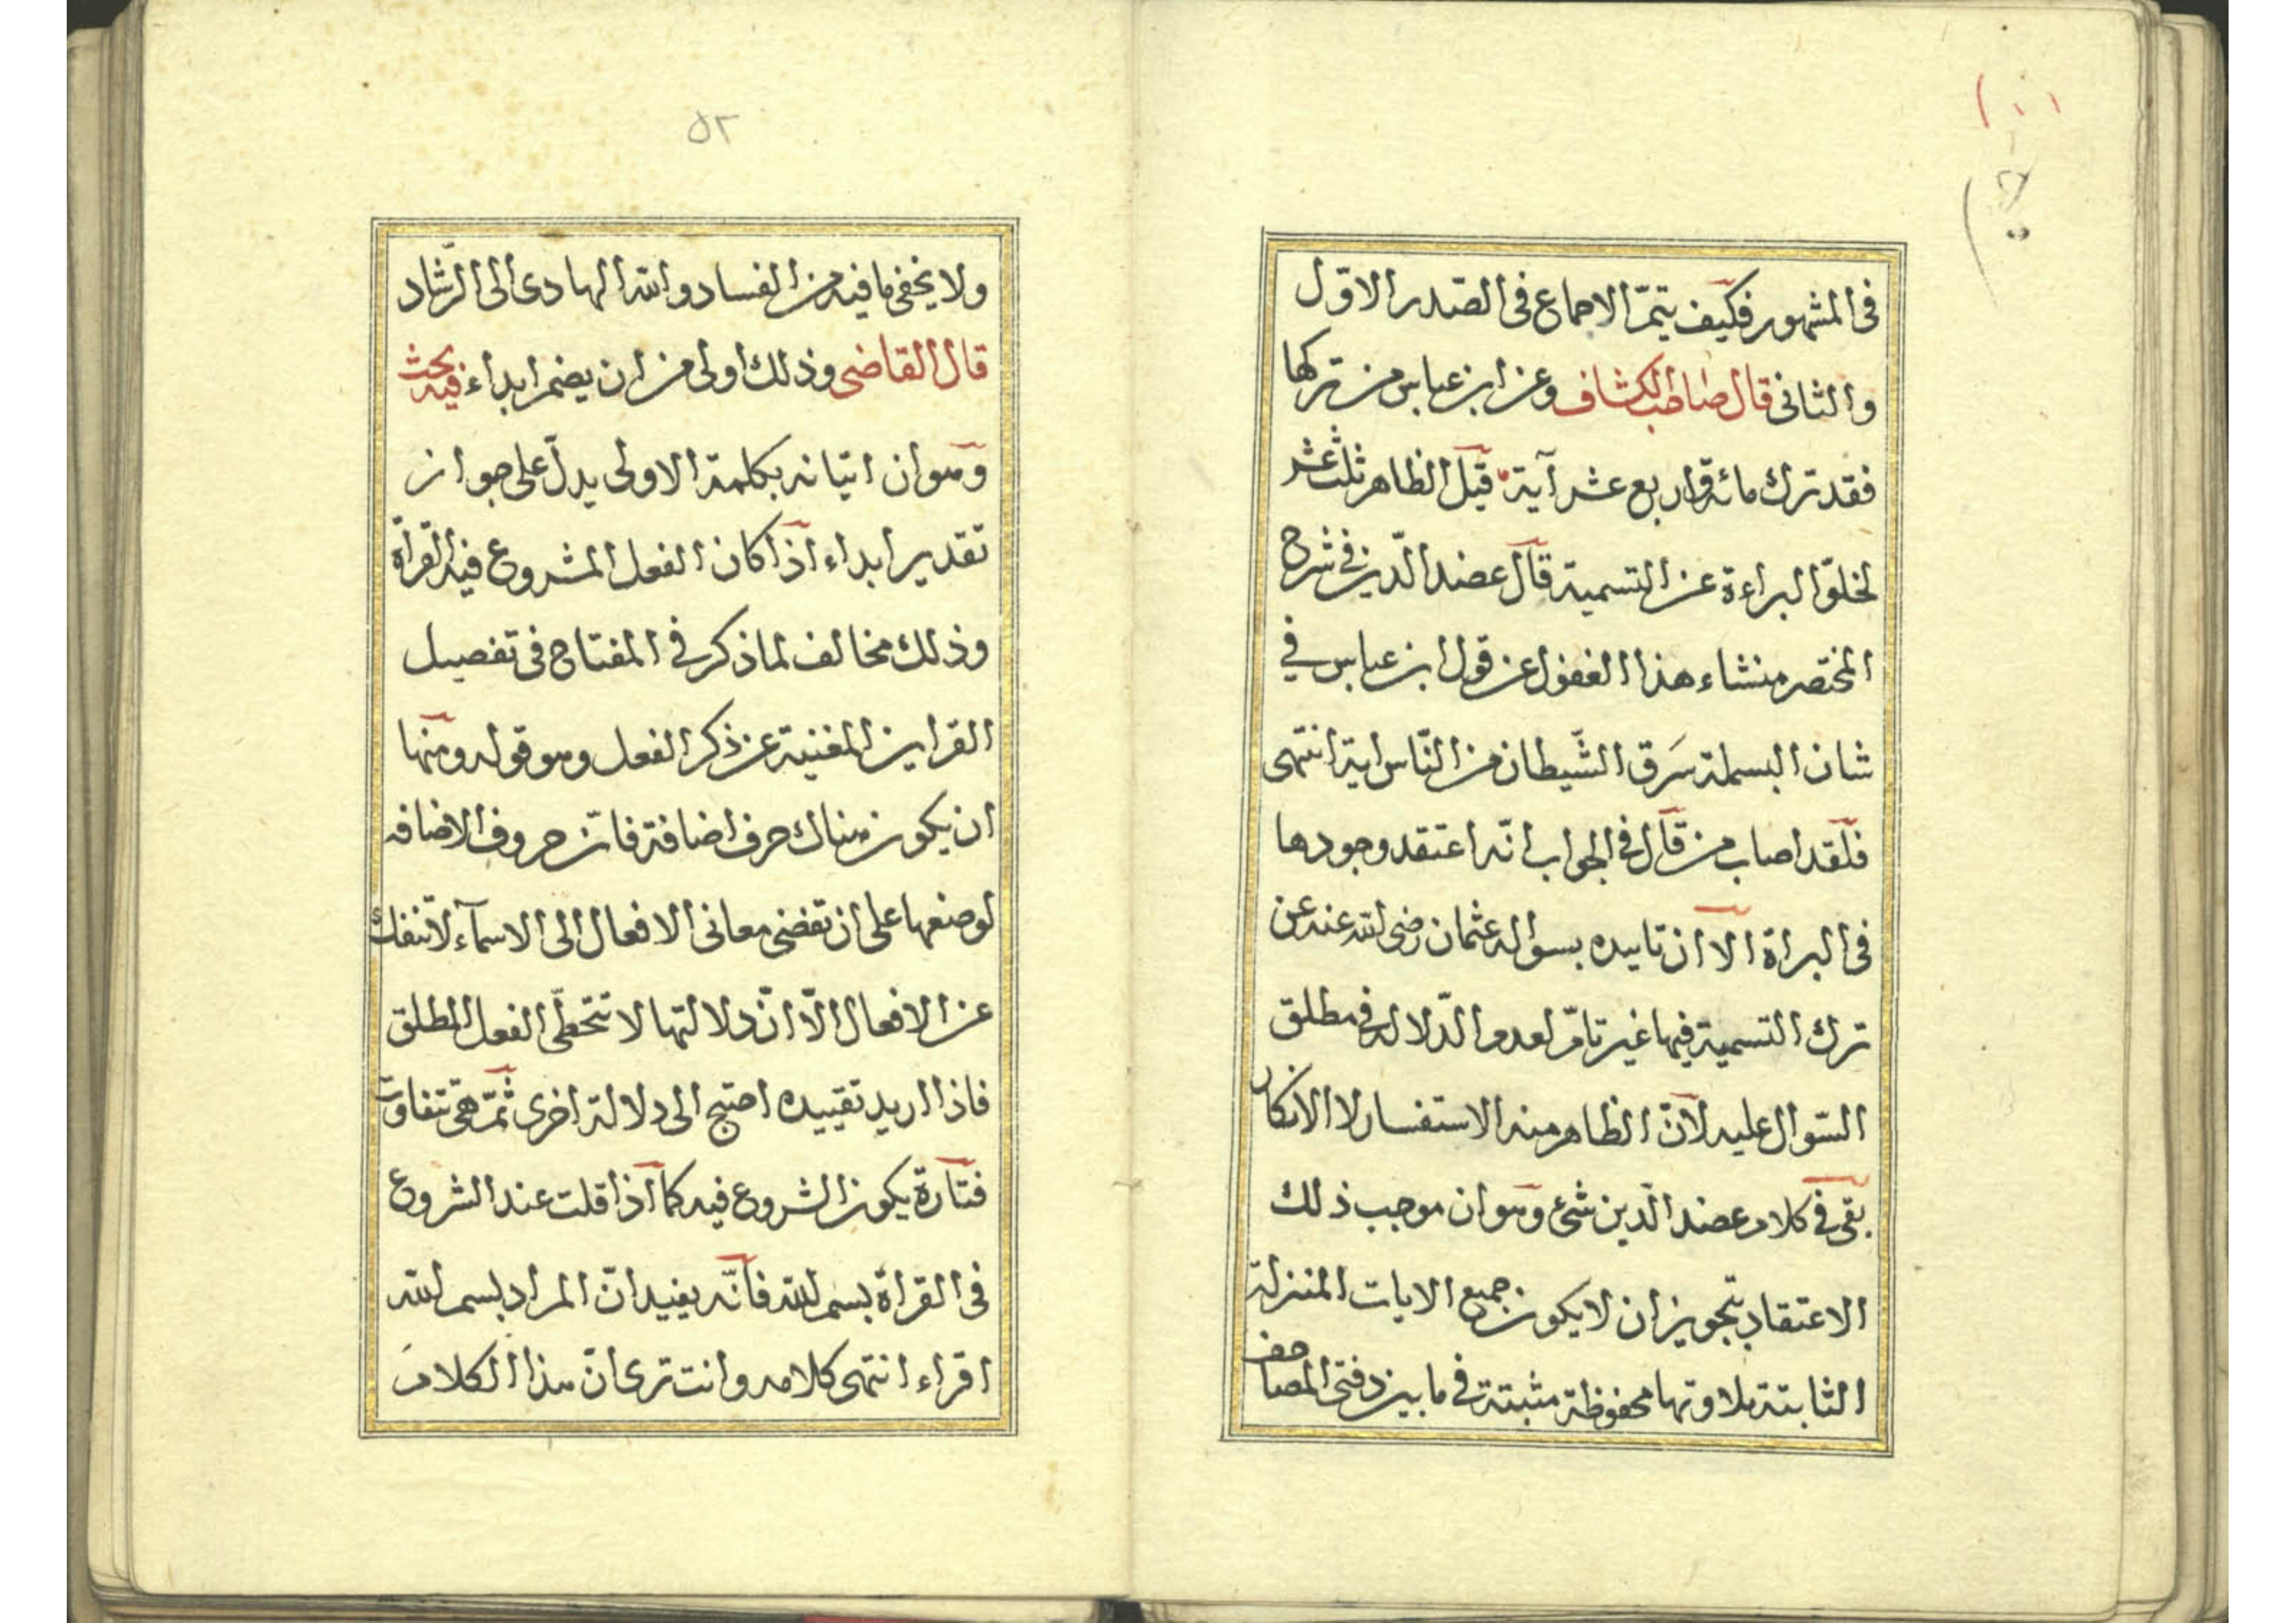 ١٠١
فى المشهور فكيف يتمّ الاجماع فى الصّدر الاوّل
والثانى قال صاحب الكشاف وعن ابن عباس من تركها
فقد ترك مائة واربع عشر آية قيل الظاهر ثلث عشر
لخلوّ البراءة عن التسمية قال عضد الدّين فى شرح
المختصر منشاء هذا الغفول عن قول ابن عباس فى
شان البسملة سَرَق الشّيطان من النّاس اية انتهى
فلقد اصاب من قال فى الجواب انّه اعتقد وجودها
فى البراة الا ان تاييده بسواله عثمان رضى الله عنه عن
ترك التسمية فيها غير تامّ لعدم الدّلالة فى مطلق
السّوال عليه لانّ الظاهر منه الاستفسار لا الانكار
بقى فى كلام عضد الدّين شئ وهو ان موجب ذلك
الاعتقاد بتجويز ان لا يكون جميع الايات المنزلة
الثابتة تلاوتها محفوظة مثبتة فى ما بين دفتى المصاحف
٥٢
ولا يخفى ما فيه من الفساد والله الهادى الى الرّشاد
قال القاضى وذلك اولى من ان يضمر ابداء فيه بحث
وهو ان اتيانه بكلمة الاولى يدلّ على جواز
تقدير ابداء اذا كان الفعل المشروع فيه القرأة
وذلك مخالف لما ذكر فى المفتاح فى تفصيل
القراين المغنية عن ذكر الفعل وهو قوله ومنها
ان يكون هناك حرف اضافة فانّ حروف الاضافه
لوضعها على ان تفضى معانى الافعال الى الاسمآء لا تنفك
عن الافعال الّا انّ دلالتها لا تتخطّى الفعل المطلق
فاذا اريد تقييده احتج الى دلالة اخرى ثمّ هى تتفاوت
فتارة يكون الشروع فيه كما اذا قلت عند الشروع
فى القراة بسم الله فانّه يفيد انّ المراد بسم الله
اقراء انتهى كلامه وانت ترى انّ هذا الكلامَ